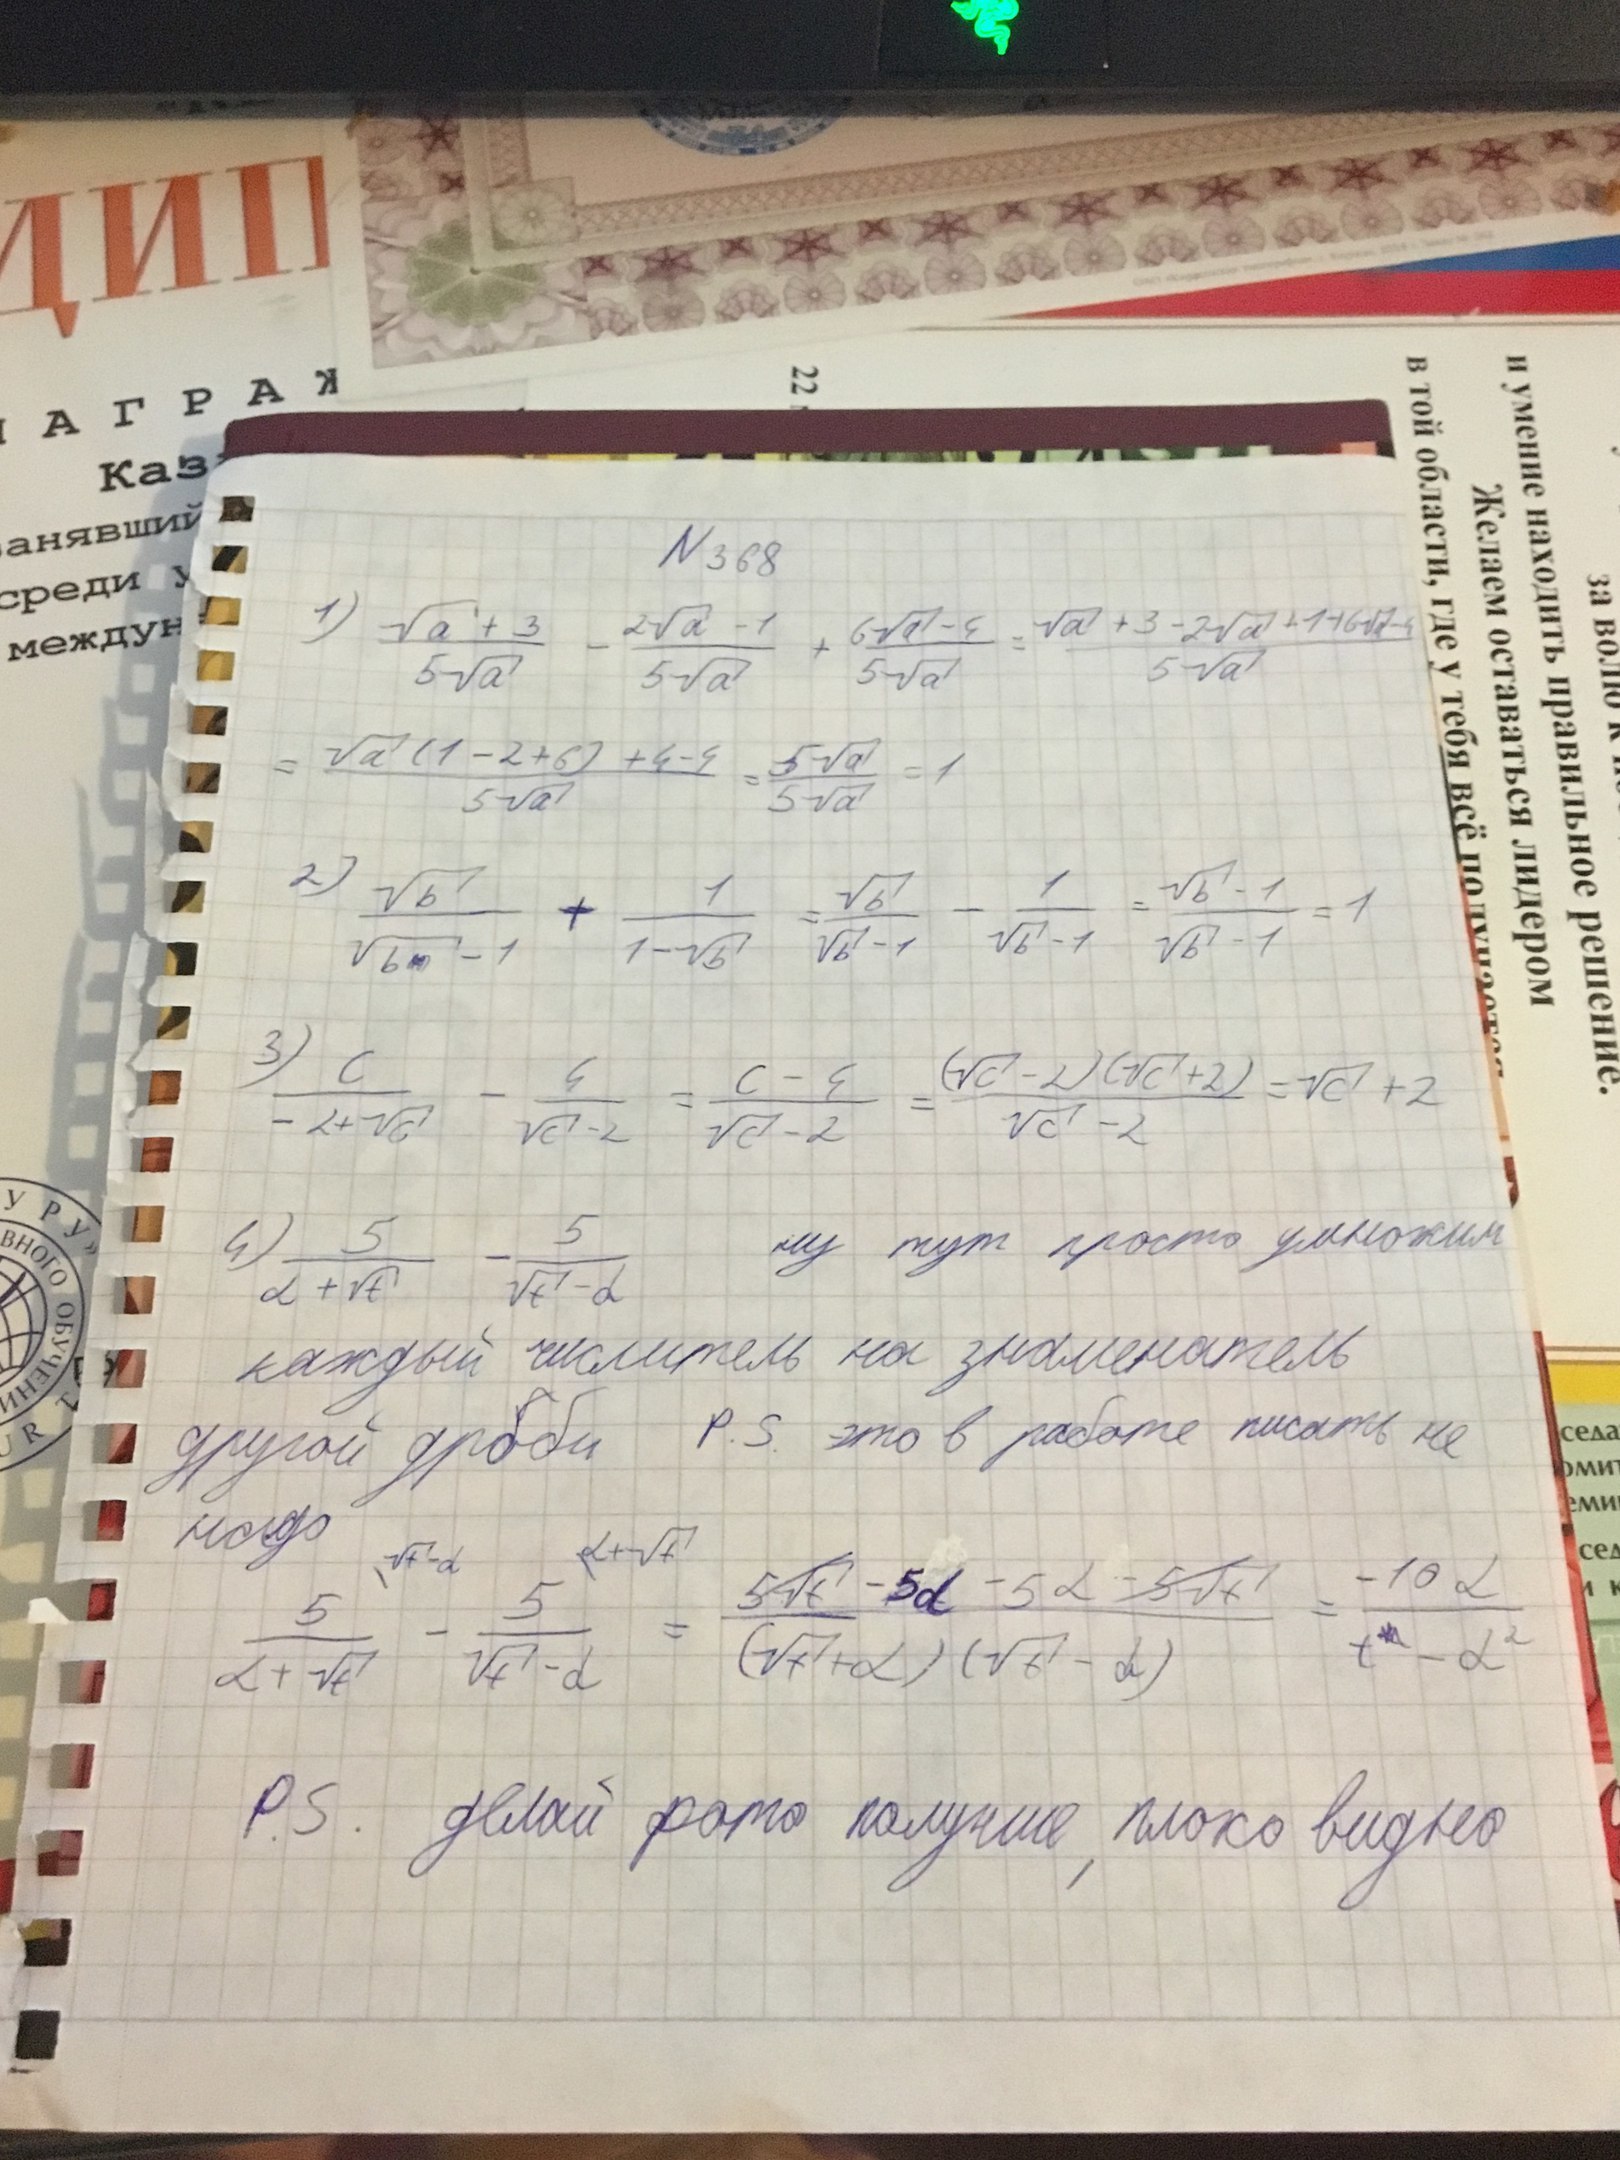 ДИП
НАГРАЖ
Каз
занявший
среди у
междун
22
и умение находить правильное решение.
Желаем оставаться лидером
в той области, где у тебя всё получается
N368
1) (√a + 3)/(5√a) - (2√a - 1)/(5√a) + (6√a - 4)/(5√a) = (√a + 3 - 2√a + 1 + 6√a - 4)/(5√a)
= (√a (1 - 2 + 6) + 4 - 4)/(5√a) = (5√a)/(5√a) = 1
2) √b/(√b - 1) + 1/(1 - √b) = √b/(√b - 1) - 1/(√b - 1) = (√b - 1)/(√b - 1) = 1
3) c/(-2 + √c) - 4/(√c - 2) = (c - 4)/(√c - 2) = ((√c - 2)(√c + 2))/(√c - 2) = √c + 2
4) 5/(d + √t) - 5/(√t - d) ну тут просто умножим
каждый числитель на знаменатель
другой дроби P.S. это в работе писать не
надо
√t - d d + √t
5/(d + √t) - 5/(√t - d) = (5√t - 5d - 5d - 5√t)/((√t + d)(√t - d)) = (-10d)/(t - d²)
P.S. делай фото получше, плохо видно